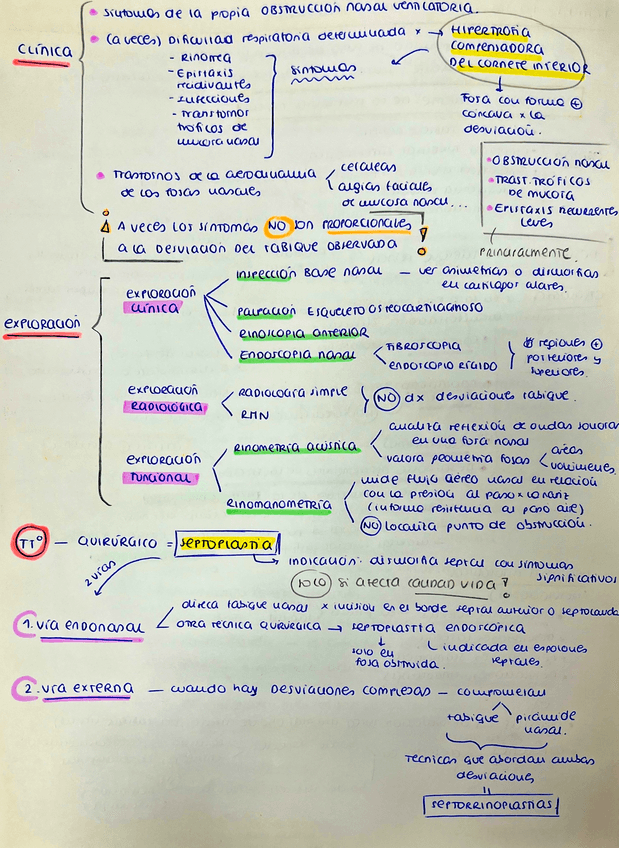 CLÍNICA
• SÍNTOMAS DE LA PROPIA OBSTRUCCIÓN NASAL VENTILATORIA.
• (A VECES) DIFICULTAD RESPIRATORIA DETERMINADA x → HIPERTROFIA
COMPENSADORA
DEL CORNETE INFERIOR
- RINORREA
- EPISTAXIS
- INFECCIONES
- TRASTORNOS
TRÓFICOS DE
MUCOSA NASAL
SÍNTOMAS
FOSA CON FORMA ⊕
CÓNCAVA x LA
DESVIACIÓN.
• TRASTORNOS DE LA AERODINÁMICA
DE LAS FOSAS NASALES
CEFALEAS
ALGIAS FACIALES
DE MUCOSA NASAL...
• OBSTRUCCIÓN NASAL
• TRAST. TRÓFICOS
DE MUCOSA
• EPISTAXIS RECURRENTES
LEVES
PRINCIPALMENTE.
A VECES LOS SÍNTOMAS NO SON PROPORCIONALES
A LA DESVIACIÓN DEL TABIQUE OBSERVADA
EXPLORACIÓN
EXPLORACIÓN
CLÍNICA
INSPECCIÓN BASE NASAL — VER ASIMETRÍAS O DISMORFIAS
EN CARTÍLAGOS ALARES.
PALPACIÓN ESQUELETO OSTEOCARTILAGINOSO
RINOSCOPIA ANTERIOR
ENDOSCOPIA NASAL
FIBROSCOPIA
ENDOSCOPIO RÍGIDO
REGIONES ⊕
POSTERIORES Y
SUPERIORES.
EXPLORACIÓN
RADIOLÓGICA
RADIOLOGÍA SIMPLE
RMN
NO dx DESVIACIONES TABIQUE.
EXPLORACIÓN
FUNCIONAL
RINOMETRÍA ACÚSTICA
ANALIZA REFLEXIÓN DE ONDAS SONORAS
EN UNA FOSA NASAL
VALORA GEOMETRÍA FOSAS
ÁREAS
VOLÚMENES.
RINOMANOMETRÍA
MIDE FLUJO AÉREO NASAL EN RELACIÓN
CON LA PRESIÓN AL PASO x LA NARIZ
(INFORMA RESISTENCIA AL PASO AIRE)
NO LOCALIZA PUNTO DE OBSTRUCCIÓN.
TTº — QUIRÚRGICO = SEPTOPLASTIA
2 VÍAS
INDICACIÓN: DISMORFIA SEPTAL CON SÍNTOMAS
SIGNIFICATIVOS
SOLO SI AFECTA CALIDAD VIDA!
1. VÍA ENDONASAL
DIRECTA TABIQUE NASAL x INCISIÓN EN EL BORDE SEPTAL ANTERIOR O
OTRA TÉCNICA QUIRÚRGICA → SEPTOPLASTIA ENDOSCÓPICA
SOLO EN
FOSA OBSTRUIDA.
INDICADA EN ESPOLONES
SEPTALES.
2. VÍA EXTERNA — CUANDO HAY DESVIACIONES COMPLEJAS — COMPROMETAN
TABIQUE PIRÁMIDE
NASAL.
TÉCNICAS QUE ABORDAN AMBAS
DESVIACIONES
=
SEPTORRINOPLASTIAS